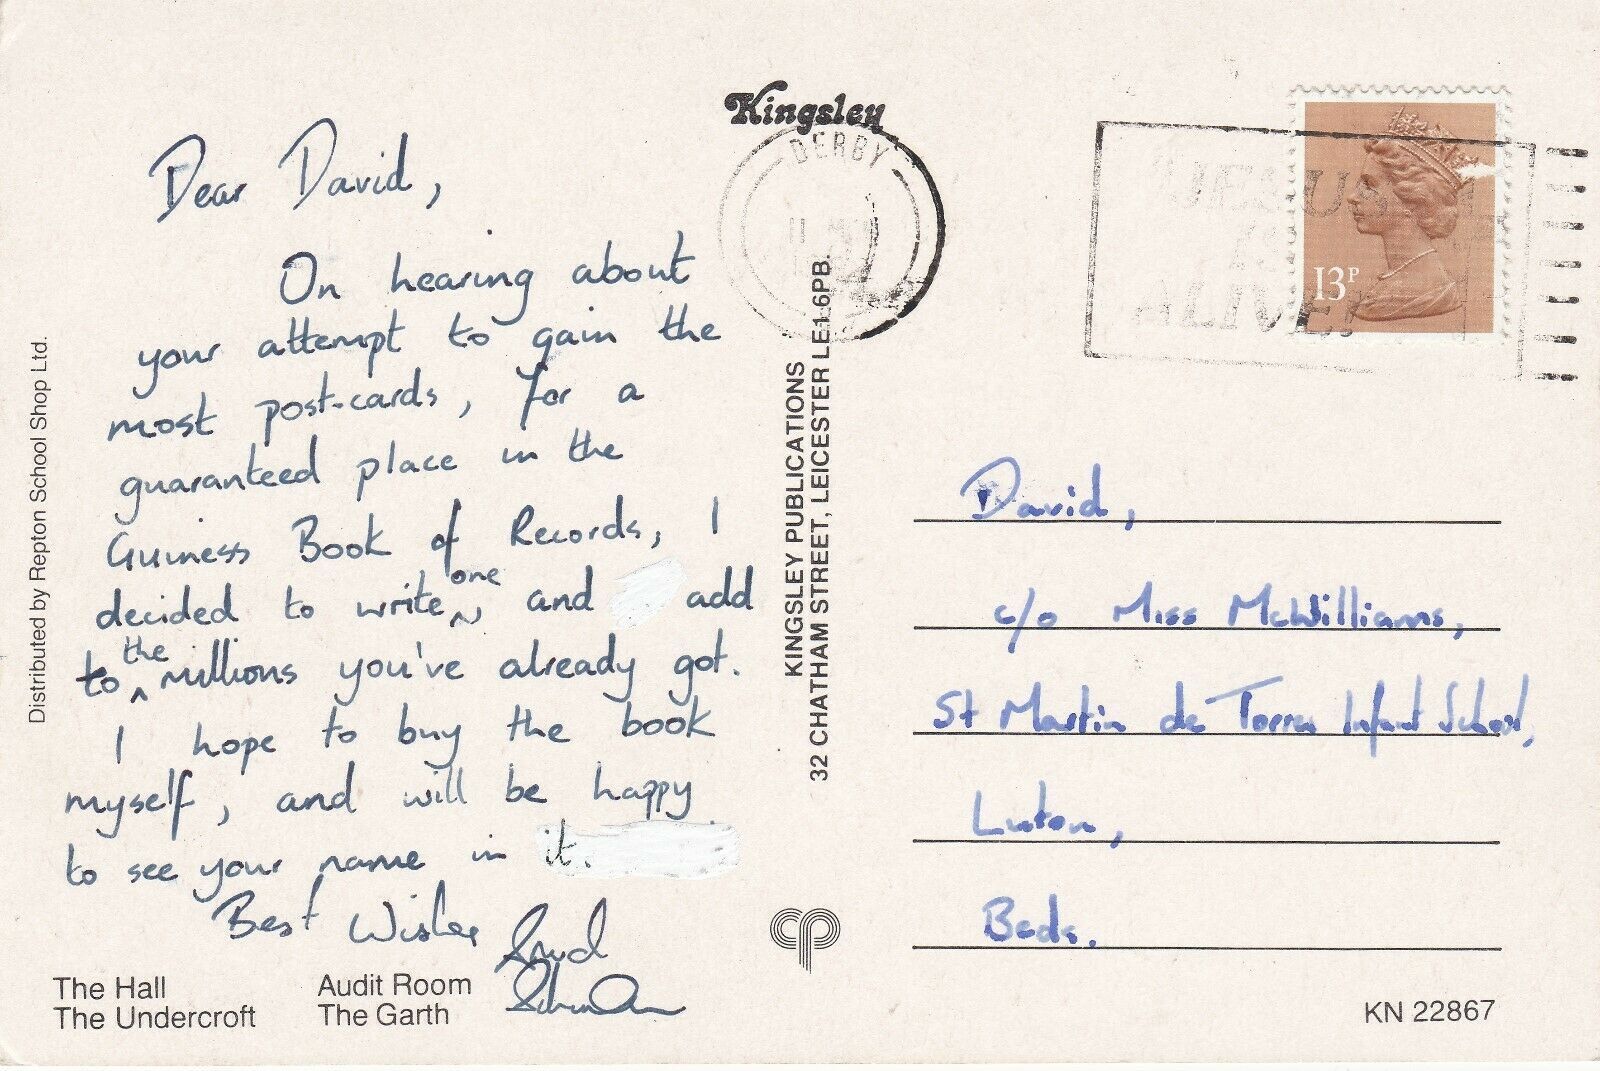 Kingsley
DERBY
"JESUS
ALIVE!
13P
Dear David,
On hearing about
your attempt to gain the
most post-cards, for a
guaranteed place in the
Guiness Book of Records, I
decided to write one, and add
to the millions you've already got.
I hope to buy the book
myself, and will be happy
to see your name in it.
Best Wishes
The Hall
The Undercroft
Audit Room
The Garth
Distributed by Repton School Shop Ltd.
KINGSLEY PUBLICATIONS
32 CHATHAM STREET, LEICESTER LE1 6PB.
cp
David,
c/o Miss McWilliams,
St Martin de Torres Infant School,
Luton,
Beds.
KN 22867